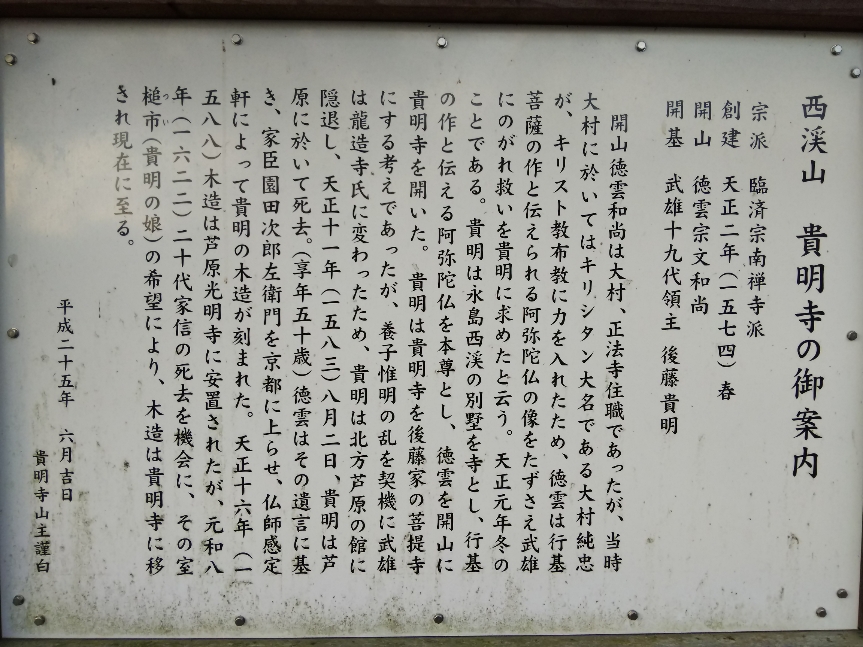 西渓山　貴明寺の御案内
宗派　臨済宗南禅寺派
創建　天正二年（一五七四）春
開山　徳雲宗文和尚
開基　武雄十九代領主　後藤貴明
開山徳雲和尚は大村、正法寺住職であったが、当時
大村に於いてはキリシタン大名である大村純忠
が、キリスト教布教に力を入れたため、徳雲は行基
菩薩の作と伝えられる阿弥陀仏の像をたずさえ武雄
にのがれ救いを貴明に求めたと云う。天正元年冬の
ことである。貴明は永島西渓の別墅を寺とし、行基
の作と伝える阿弥陀仏を本尊とし、徳雲を開山に
貴明寺を開いた。　貴明は貴明寺を後藤家の菩提寺
にする考えであったが、養子惟明の乱を契機に武雄
は龍造寺氏に変わったため、貴明は北方芦原の館に
隠退し、天正十一年（一五八三）八月二日、貴明は芦
原に於いて死去。（享年五十歳）徳雲はその遺言に基
き、家臣園田次郎左衛門を京都に上らせ、仏師感定
軒によって貴明の木造が刻まれた。　天正十六年（一
五八八）木造は芦原光明寺に安置されたが、元和八
年（一六二二）二十代家信の死去を機会に、その室
槌市（貴明の娘）の希望により、木造は貴明寺に移
つい
され現在に至る。
平成二十五年　六月吉日
貴明寺山主謹白